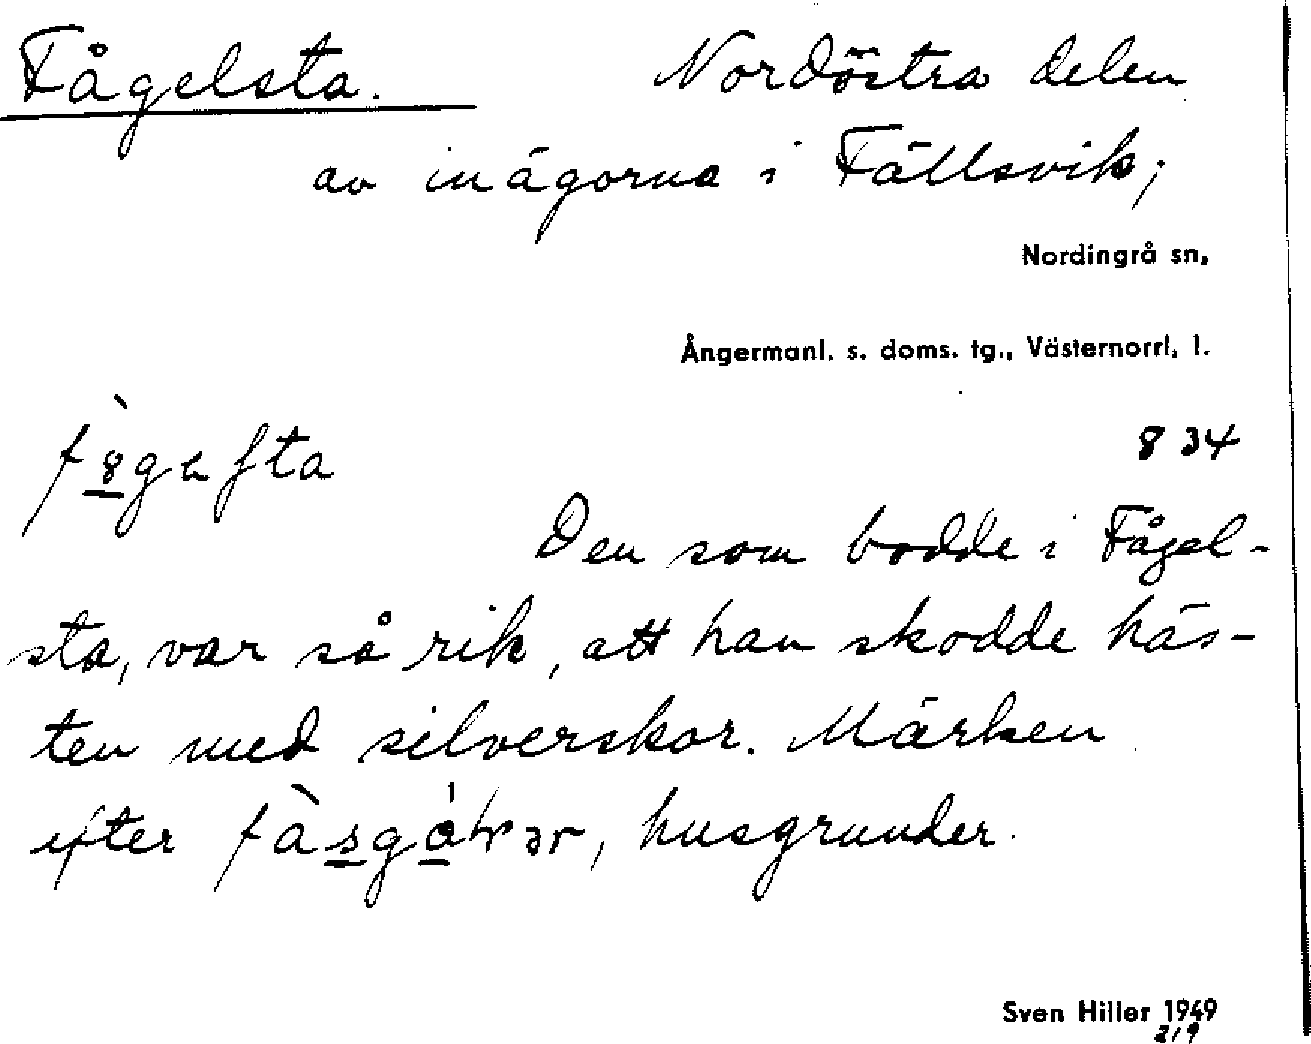 Fågelsta. Nordöstra delen
av inägorna i Fällsvik;
Nordingrå sn.
Ångermanl. s. doms. tg., Västernorrl. l.
8 34
Den som bodde i Fågel-
sta, var så rik, att han skodde häs-
ten med silverskor. Märken
efter , husgrunder.
Sven Hiller 1949
2/9